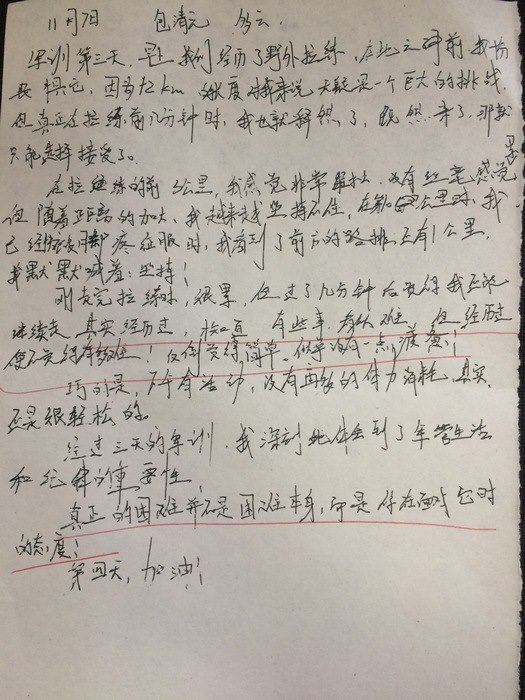 11月7日 包清元 多云
军训第三天,早上我们经历了野外拉练,在此之前我十分
恐惧它,因为12km的长度对我来说无疑是一个巨大的挑战,
但真正在拉练前几分钟时,我也就释然了,既然来了,那我
只能选择接受了。
在拉练的前3公里,我感觉非常轻松,没有丝毫感觉累
但随着距离的加大,我越来越坚持不住,在第 公里时,我
已经被脚疼征服时,我看到了前方的路排,还有1公里,
我默默喊着:坚持!
刚走完拉练时,很累,但过了几分钟后觉得我还能
继续走,其实经历过, 有些事,看似难,但经历过
便不觉得有多难!反倒觉得简单,似乎没有一点疲惫!
巧的是,下午有活动,没有再多的体力消耗,其实
还是很轻松的。
经过三天的军训,我深刻地体会到了军营生活
和纪律的重要性,
真正的困难并不是困难本身,而是存在面对它时
的态度!
第四天,加油!